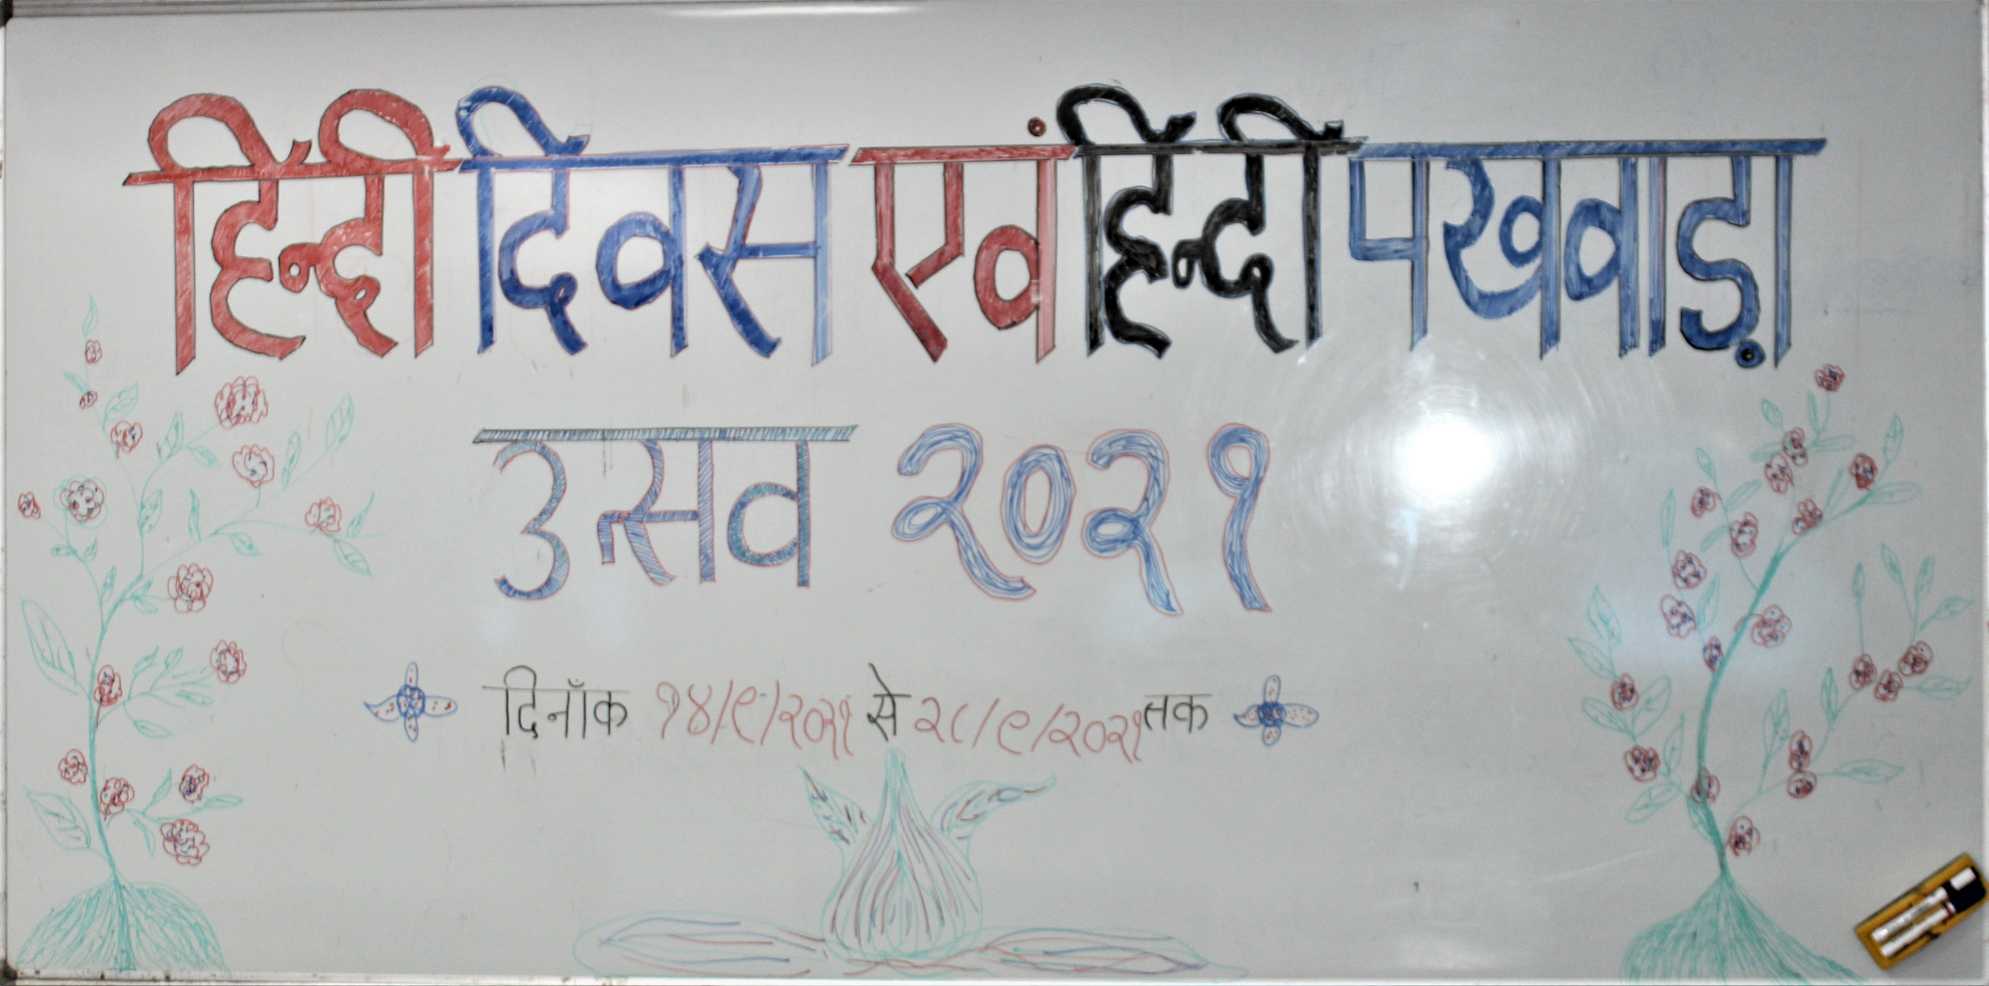 हिन्दी दिवस एवं हिन्दी पखवाड़ा
उत्सव २०२१
दिनाँक १४/९/२०२१ से २८/९/२०२१ तक